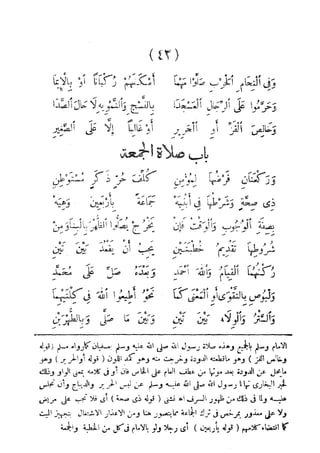 (٤٢)
وفي التحام الحرب صلوا مهما أمكنهم ركبانا أو بالإيما
وحرموا على الرجال العسجدا بالنسج والتمويه لا حال الصدا
وخالص القز أو الحرير أو غالبا إلا على الصغير
باب صلاة الجمعة
وركعتان فرضها لمؤمن كلف حر ذكر مستوطن
ذي صحة وشرطها في أبنيه جماعة بأربعين وهيه
بصفة الوجوب والوقت فإن يخرج يصلوا الظهر بالبنا ومن
شروطها تقديم خطبتين يجب أن يقعد بين تين
ركنهما القيام والله احمد وبعده صل على محمد
وليوص بالتقوى أو المعنى كما نحو أطيعوا الله في كلتيهما
والستر والولاء بين تين وبين ما صلى وبالطهرين
الامام وسلم بالجميع وهذه صلاة رسول الله صلى الله عليه وسلم بعسفان كما رواه مسلم (قوله
وخالص القز) وهو ما قطعته الدودة وخرجت منه وهو كمد اللون (قوله أو الحرير) وهو
ما يحل عن الدودة بعد موتها من عطف العام على الخاص فان أو في كلامه بمعنى الواو وذلك
لخبر البخاري نهانا رسول الله صلى الله عليه وسلم عن لبس الحرير والديباج وأن نجلس
عليه ولما في ذلك من ظهور السرف اه فشني (قوله ذي صحة) أي فلا تجب على مريض
ولا على معذور بمرخص في ترك الجماعة مما يتصور هنا ومن الاعذار الاشتغال بتجهيز الميت
كما اقتضاه كلامهم (قوله بأربعين) أي رجلا ولو بالامام في كل من الخطبة والجمعة